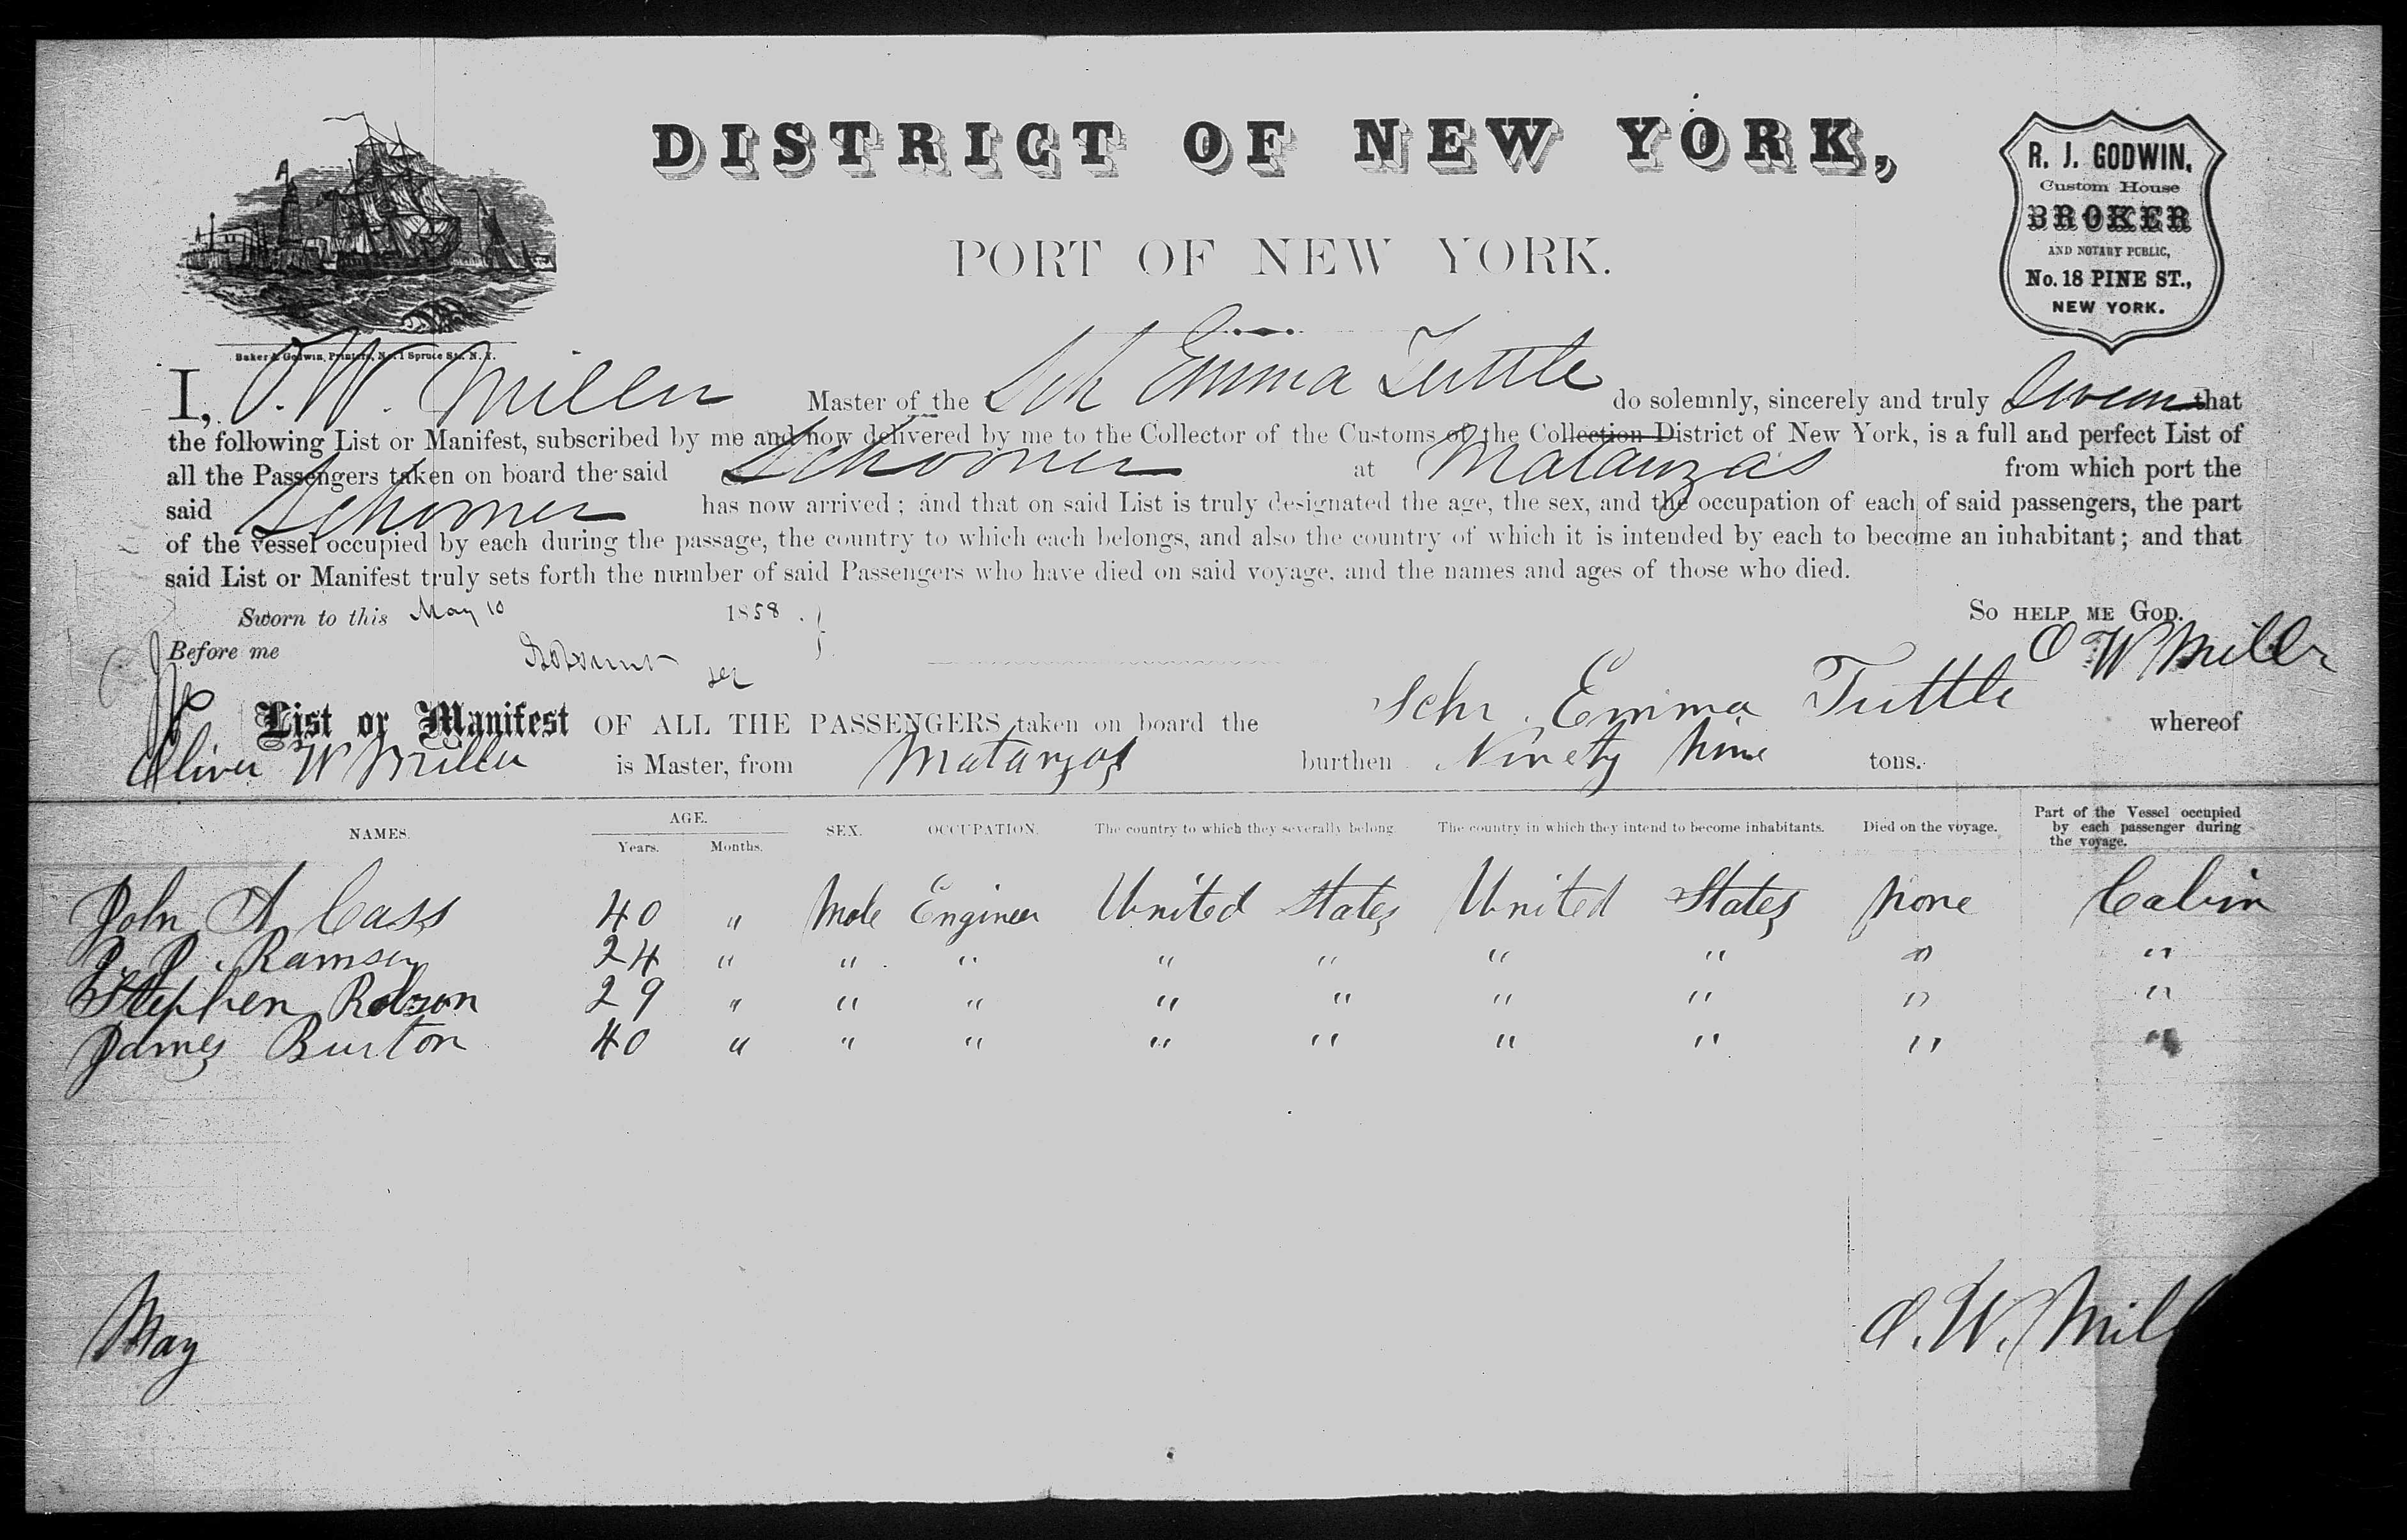 DISTRICT OF NEW YORK,
PORT OF NEW YORK.
R. J. GODWIN,
Custom House
BROKER
AND NOTARY PUBLIC,
No. 18 PINE ST.,
NEW YORK.
Baker & Godwin, Printers, No. 1 Spruce St. N. Y.
I, O. W. Miller Master of the Sch Emma Tuttle do solemnly, sincerely and truly Swear that
the following List or Manifest, subscribed by me and now delivered by me to the Collector of the Customs of the Collection District of New York, is a full and perfect List of
all the Passengers taken on board the said Schooner at Matanzas from which port the
said Schooner has now arrived ; and that on said List is truly designated the age, the sex, and the occupation of each of said passengers, the part
of the vessel occupied by each during the passage, the country to which each belongs, and also the country of which it is intended by each to become an inhabitant ; and that
said List or Manifest truly sets forth the number of said Passengers who have died on said voyage, and the names and ages of those who died.
Sworn to this May 10 1858. So HELP ME GOD.
Before me O W Miller
List or Manifest OF ALL THE PASSENGERS taken on board the Schr. Emma Tuttle whereof
Oliver W Miller is Master, from Matanzas burthen Ninety Nine tons.
NAMES. AGE. Years. Months. SEX. OCCUPATION. The country to which they severally belong. The country in which they intend to become inhabitants. Died on the voyage. Part of the Vessel occupied by each passenger during the voyage.
John A Cass 40 " Male Engineer United States United States None Cabin
Ramsey 24 " " " " " " " " "
Stephen Robson 29 " " " " " " " " "
James Burton 40 " " " " " " " " "
May
O. W. Mill